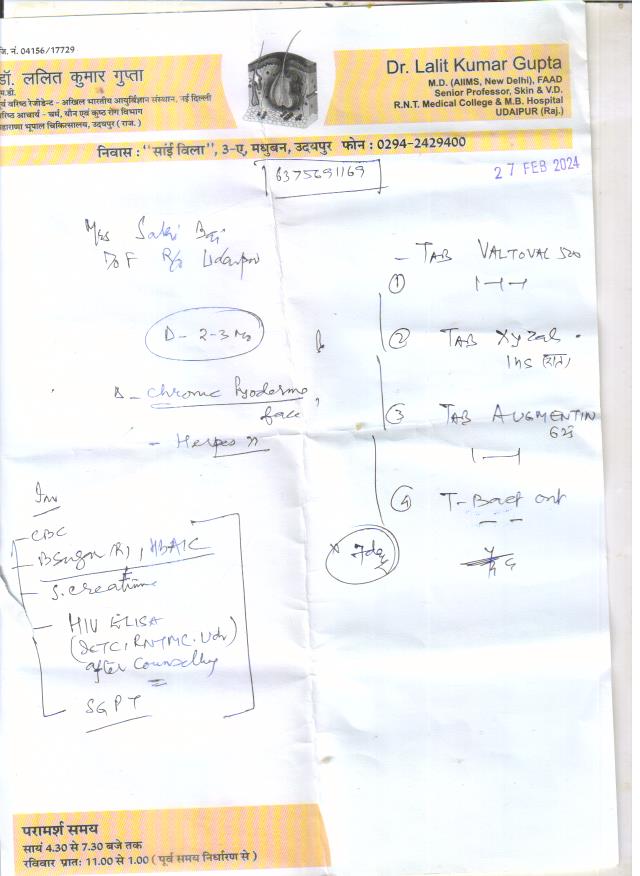 जि. नं. 04156/17729
डॉ. ललित कुमार गुप्ता
एम.डी.
पूर्व वरिष्ठ रेजीडेन्ट - अखिल भारतीय आयुर्विज्ञान संस्थान, नई दिल्ली
वरिष्ठ आचार्य - चर्म, यौन एवं कुष्ठ रोग विभाग
महाराणा भूपाल चिकित्सालय, उदयपुर ( राज. )
Dr. Lalit Kumar Gupta
M.D. (AIIMS, New Delhi), FAAD
Senior Professor, Skin & V.D.
R.N.T. Medical College & M.B. Hospital
UDAIPUR (Raj.)
निवास : "सांई विला", 3-ए, मधुबन, उदयपुर फोन : 0294-2429400
6375691169
27 FEB 2024
Mrs
R/o Udaipur
D- 2-3
- chronic Pyoderma
face
- Herpes
Inv
- CBC
- B Sugar R, HBA1C
- S. creatinine
- HIV ELISA
(ICTC, RNTMC. Udr)
after Counselling
SGPT
- TAB VALTOVAL 500
1-1-1
② TAB Xyzal
1 hs (रात)
③ TAB AUGMENTIN
625
1-1
④ T-Bact ont
x 7 days
परामर्श समय
सायं 4.30 से 7.30 बजे तक
रविवार प्रात: 11.00 से 1.00 ( पूर्व समय निर्धारण से )